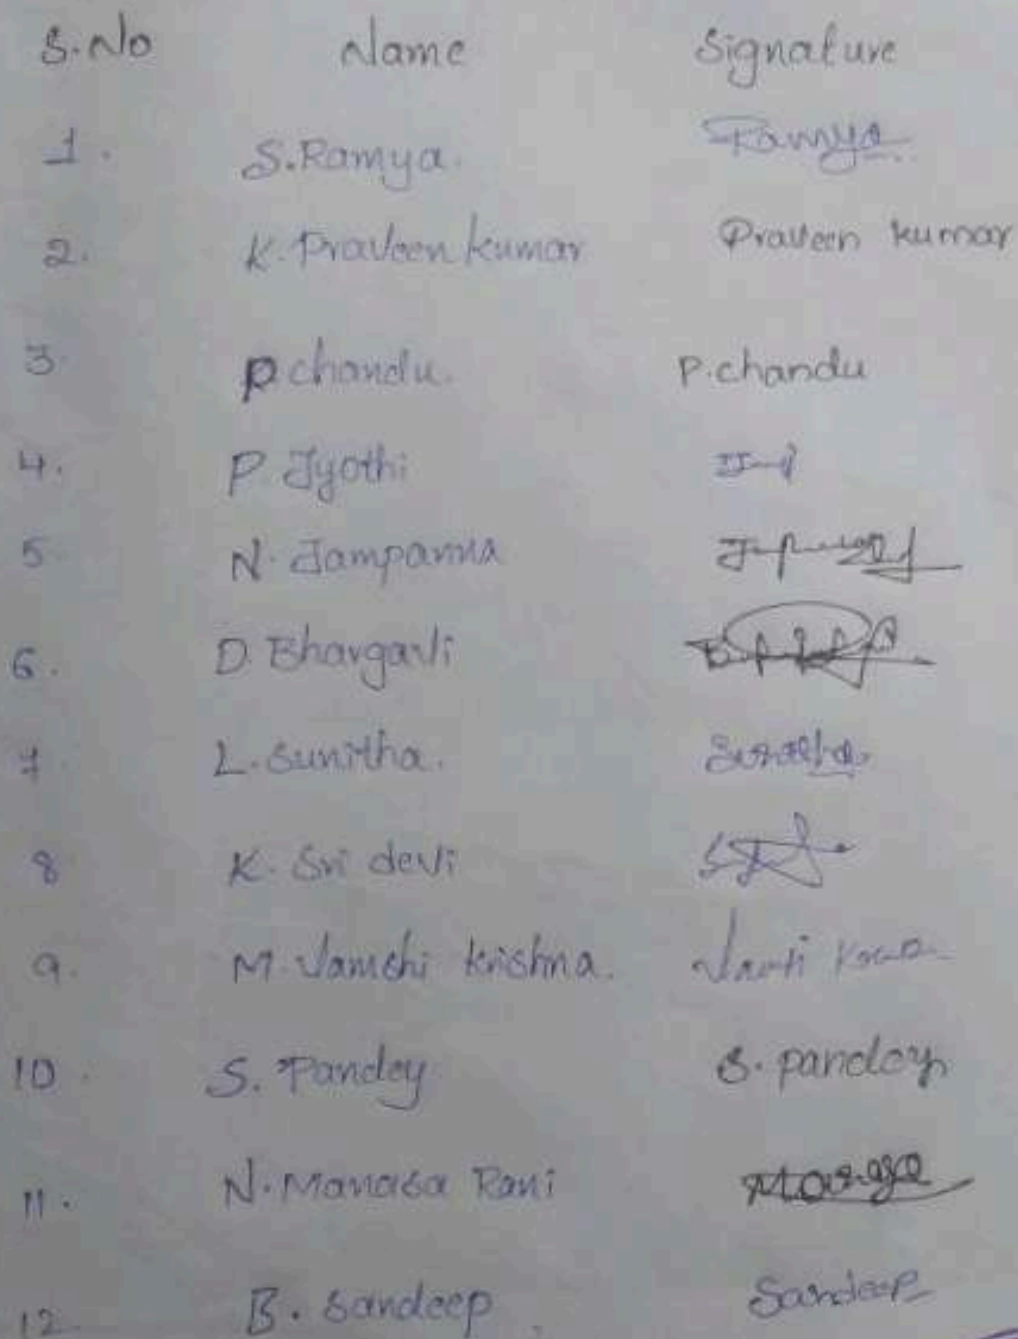 S.No Name Signature
1. S.Ramya. Ramya
2. K. Praveen kumar Praveen kumar
3. P chandu. P.chandu
4. P. Jyothi
5. N. Jampanna
6. D. Bhargavi
7. L. Sunitha. Sunitha
8 K. Sri devi
9. M. Vamshi krishna.
10. S. Pandey S. pandey
11. N. Manasa Rani
12. B. Sandeep Sandeep